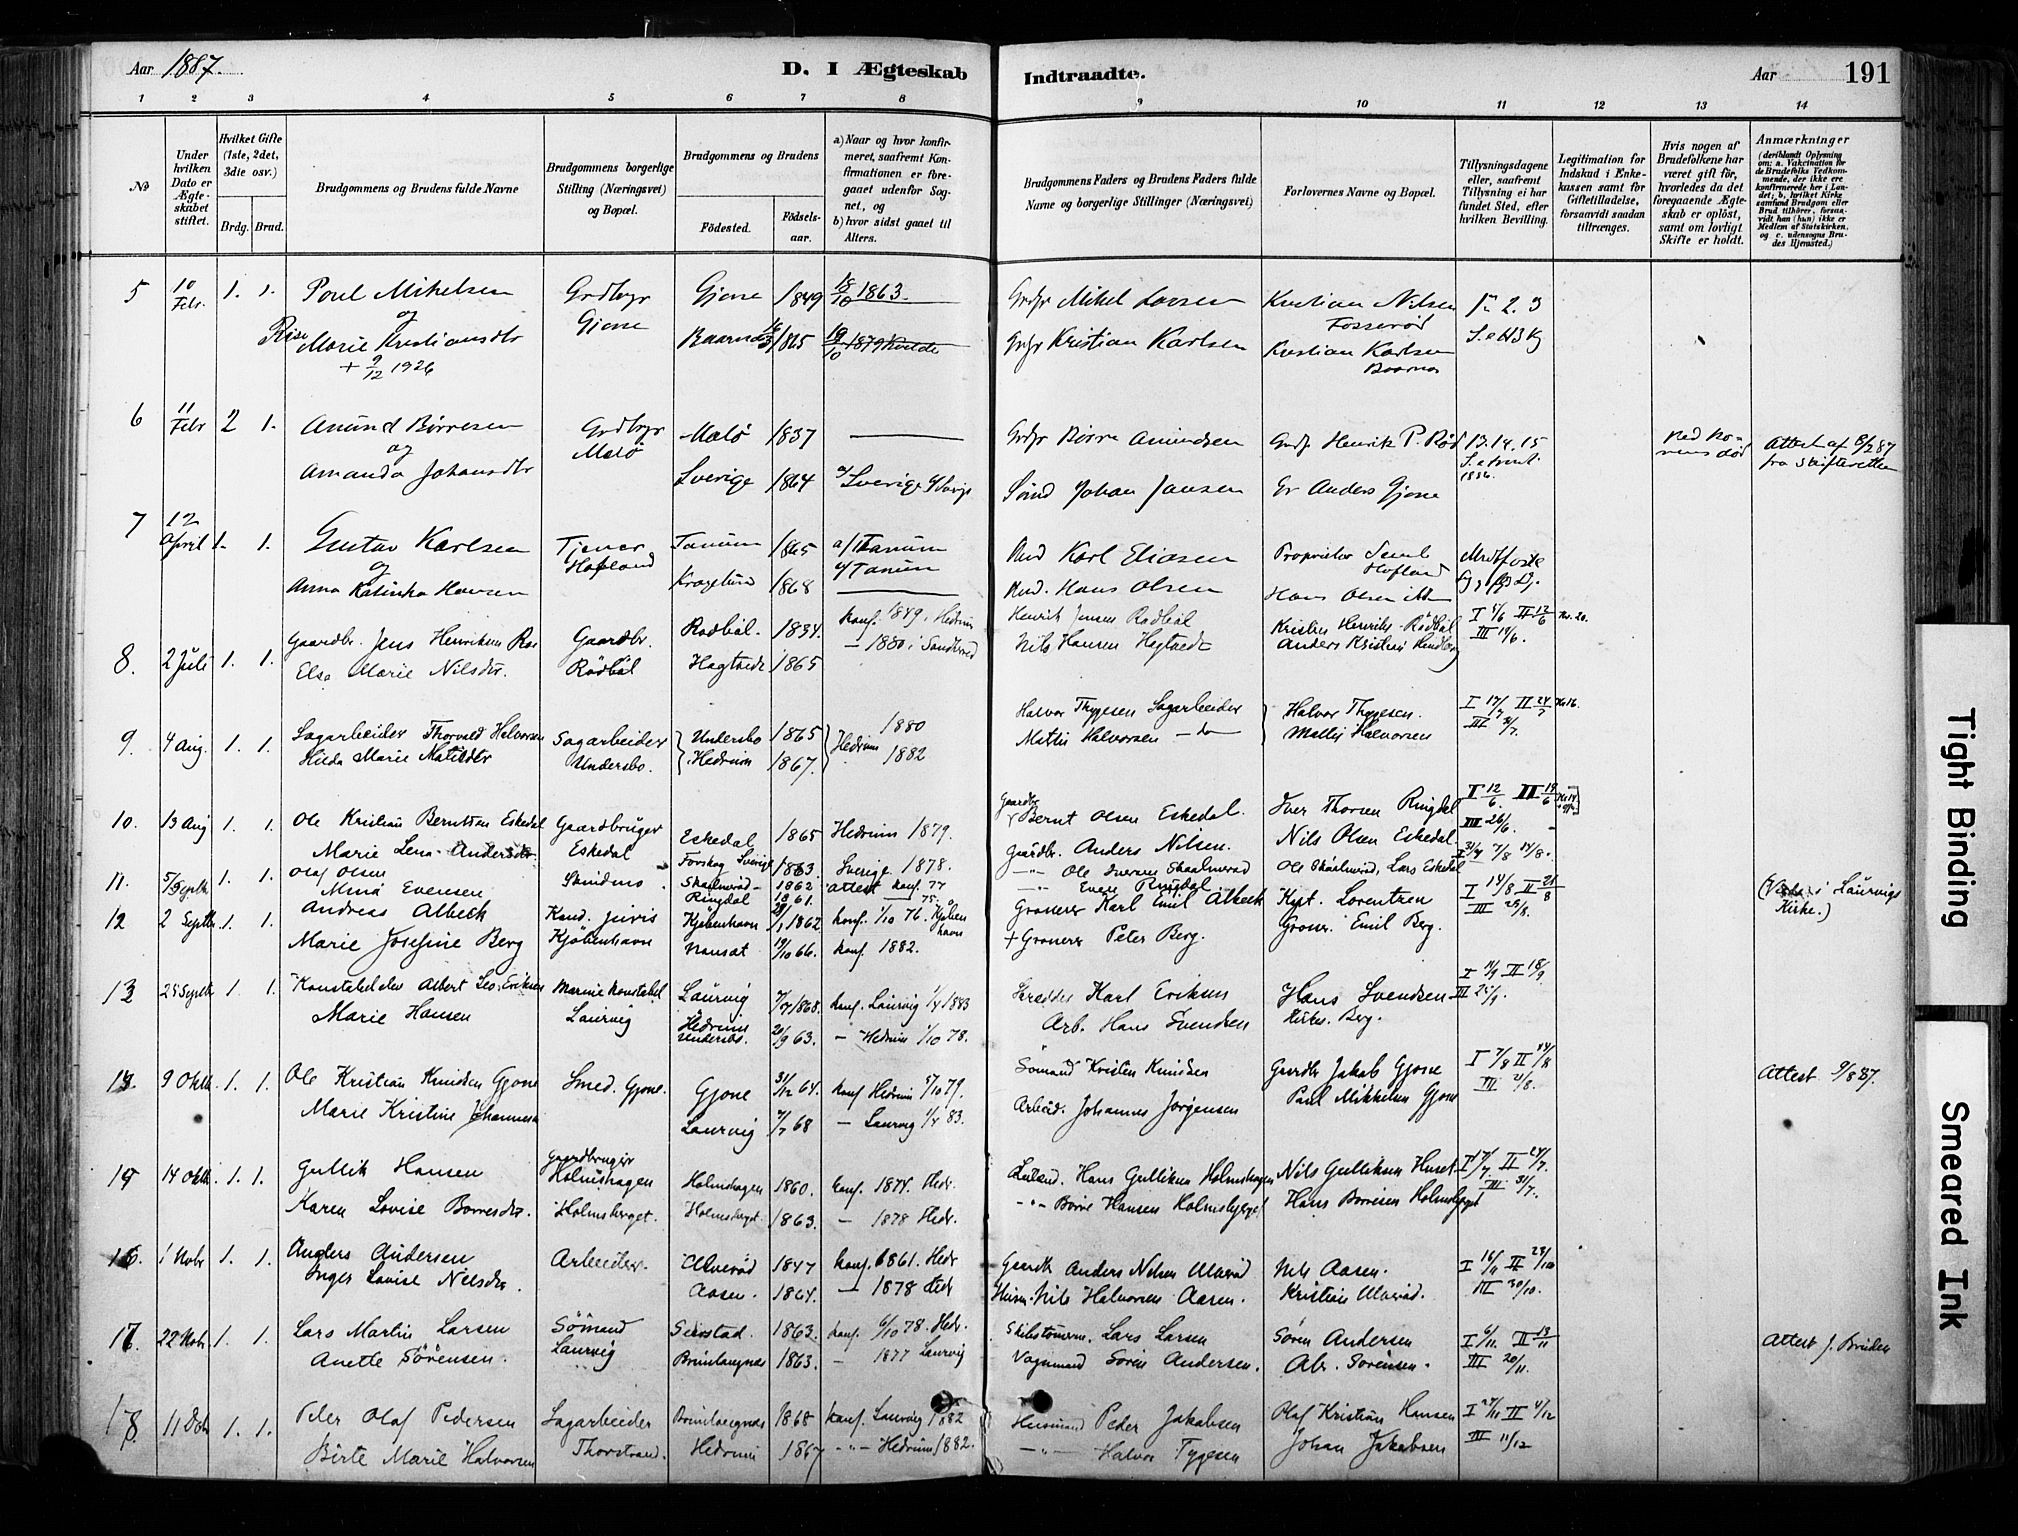 Aar 1887.
D. I Ægteskab
Indtraadte.
Aar
191
1 2 3 4 5 6 7 8 9 10 11 12 13 14
№
Under hvilken Dato er Ægteskabet stiftet.
Hvilket Gifte (1ste, 2det, 3die osv.)
Brdg. Brud.
Brudgommens og Brudens fulde Navne
Brudgommens borgerlige Stilling (Næringsvei) og Bopæl.
Brudgommens og Brudens
Födested.
Födselsaar.
a) Naar og hvor konfirmeret, saafremt Konfirmationen er foregaaet udenfor Sognet, og
b) hvor sidst gaaet til Alters.
Brudgommens Faders og Brudens Faders fulde Navne og borgerlige Stillinger (Næringsvei)
Forlovernes Navne og Bopæl.
Tillysningsdagene eller, saafremt Tillysning ei har fundet Sted, efter hvilken Bevilling.
Legitimation for Indskud i Enkekassen samt for Giftetilladelse, forsaavidt saadan tiltrænges.
Hvis nogen af Brudefolkene har været gift för, hvorledes da det foregaaende Ægteskab er oplöst, samt om lovligt Skifte er holdt.
Anmærkninger
(deriblandt Oplysning om: a. Vakcination for de Brudefolks Vedkommende, der ikke ere konfirmerede her i Landet; b. hvilket Kirkesamfund Brudgom eller Brud tilhörer, forsaavidt han (hun) ikke er Medlem af Statskirken, og c. udensogns Brudes Hjemsted.)
5 10 Febr. 1. 1. Poul Mikelsen Grdbrgr Gjone 1849 18/10 1863. Grdgr Mikel Larsen Kristian Nilsen Fosserød 1 2. 3
og Gjone
Marie Kristiansdtr 16/3 1865 19/10 1879 Kvelde Grdgr Kristian Karlsen Kristian Karlsen
+ 9/12 1926
6 11 Febr 2 1. Anund Børresen Grdbrgr Melø 1837 Grdgr Børre Amundsen Grdgr Henrik P. Rød 13. 14. 15 Attest af 8/2 87
og Melø fra Skifteretten
Amanda Johansdtr Sverige 1864 a/ Sverige Johan Jansen Er Anders Gjone 1886.
7 12 April 1. 1. Gustav Karlsen Tjener Tanum 1865 a/ Tanum Karl Eliasen Proprietær
og Hafland
Anna Katinka Hansen 1868 Hans Olsen Hans Olsen
8. 2 Juli 1. 1. Gaardbr. Jens Henriksen Gaardbr. Rødbøl. 1834. konf. 1849 i Hedrum Henrik Jensen Rødbøl Kristen Henriks. Rødbøl I 5/6 II 12/6 III 19/6.
Else Marie Nilsdtr. Rødbøl Hagtvedt 1865 — 1880 i Sandherred Nils Hansen Hagtvedt Anders Kristian
9. 4 Aug. 1. 1. Sagarbeider Thorvald Halvorsen Sagarbeider Undersbo 1865 Hedrum 1880 Halvor Thygesen Sagarbeider Halvor Thygesen. I 17/7 II 24/7 III 31/7.
Hilda Marie Undersbo. Hedrum 1867 1882 Mathis Halvorsen — do Mathis Halvorsen
10. 13 Aug 1. 1. Ole Kristian Berntsen Eskedal Gaardbruger Eskedal 1865 Hedrum 1879. Gaardbr Bernt Olsen Eskedal. Iver Thorsen Ringdal I 12/6. II 19/6 III 26/6.
Marie Lena Andersdtr. Eskedal Sverige 1863 Sverige 1878. Gaardbr. Anders Nilsen. Nils Olsen Eskedal
11. 1. 1. Olaf Olsen Skindmo Skaalmrød 1862 attest konf. 77 Ole Iversen Skaalmerød Ole Skaalmrød, Lars Eskedal 31/7 7/8 14/8.
Mina Evensen Ringdal 1861. — 75. Even Ringdal
12 2 Septbr 1. 1. Andreas Albeck Kand. juris Kjøbenhavn 1862 konf. 1/10 76. Kjøbenhavn Grosserer Karl Emil Albeck Kapt. Lorentzen I 14/8 II 21/8 III 28/8. (Viede i Laurvigs Kirke.)
Marie Josefine Berg Kjøbenhavn Nansæt 19/10 66. konf. 1882. + Grosserer Peter Berg. Grosser. Emil Berg.
13 25 Septbr 1. 1. Albert Eriksen Marinekonstabel Laurvig 7/7 1868. konf. Laurvig 1/4 1883 Skredder Karl Eriksen Hans Svendsen I 11/9 II 18/9 III 25/9.
Marie Hansen Laurvig Hedrum Undersbo. 20/9 63. — Hedrum 1/10 78. Arb. Hans Svendsen Berg.
9 Oktb. 1. 1. Ole Kristian Knudsen Gjone Smed. Gjone. Gjone 31/12 64. konf Hedrum 5/10 79. Sømand Kristen Knudsen Gaardbr Jakob Gjone I 7/8 II 14/8 III 21/8. Attest 9/8 87.
Marie Kristine Johannesen Laurvig 7/7 68 — Laurvig 1/4 83. Arbeid. Johannes Jørgensen Paul Mikkelsen Gjone
15 14 Oktb. 1. 1. Gullik Hansen Gaardbruger Holmshagen Holmshagen 1860. konf. 1874. Hedr. Hans Gulliksen Holmshagen Nils Gulliksen Huset I 17/7 II 24/7. III 31/7.
Karen Lovise Borresdtr. Holmsberget. Holmsberget 1863. — 1878 Hedr. Børre Hansen Holmsberget Hans Børresen Holmsberget
16. 1 Novbr 1. 1. Anders Andersen Arbeider. Ulverød 1847 konf. 1861. Hedr Gaardb Anders Nilsen Ulverød Nils Aasen. III 30/10.
Inger Lovise Nilsdtr. Aasen. 1864. — 1878 Hedr Nils Halvorsen Aasen. Kristian Ulverød.
17 22 Novbr 1. 1. Lars Martin Larsen Sømand 1863. konf. 6/10 78. Hedr. Lars Larsen Søren Andersen I 6/11. II 13/11 III 20/11. Attest f. Bruden
Anette Sørensen. Laurvig Brunlangnæs 1863. — 1877 Laurvig Vognmand Søren Andersen. Abr. Sørensen.
18. 11 Dcb 1. 1. Peter Olaf Pedersen Sagarbeider Brunlangnæs 1868 konf. Laurvig 1882 Husmand Peder Jakobsen Olaf Kristian Hansen I 27/11 II 4/12 III 11/12
Birte Marie Halvorsen Thorstrand. Hedrum 1867 Hedrum 1882. Halvor Tygesen Johan Jakobsen
Tight Binding
Smeared Ink